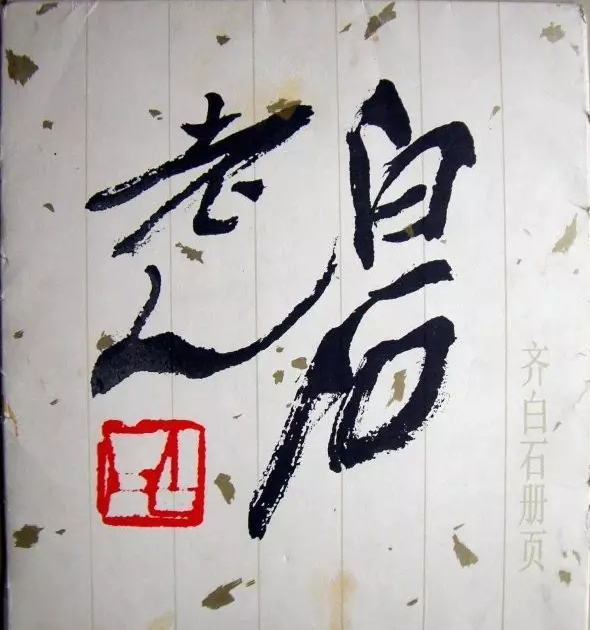 白石
老人
齐白石册页